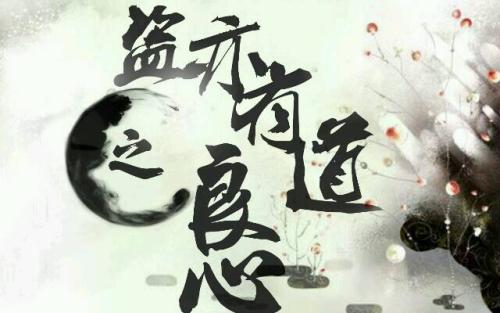 盗亦有道
之
良心